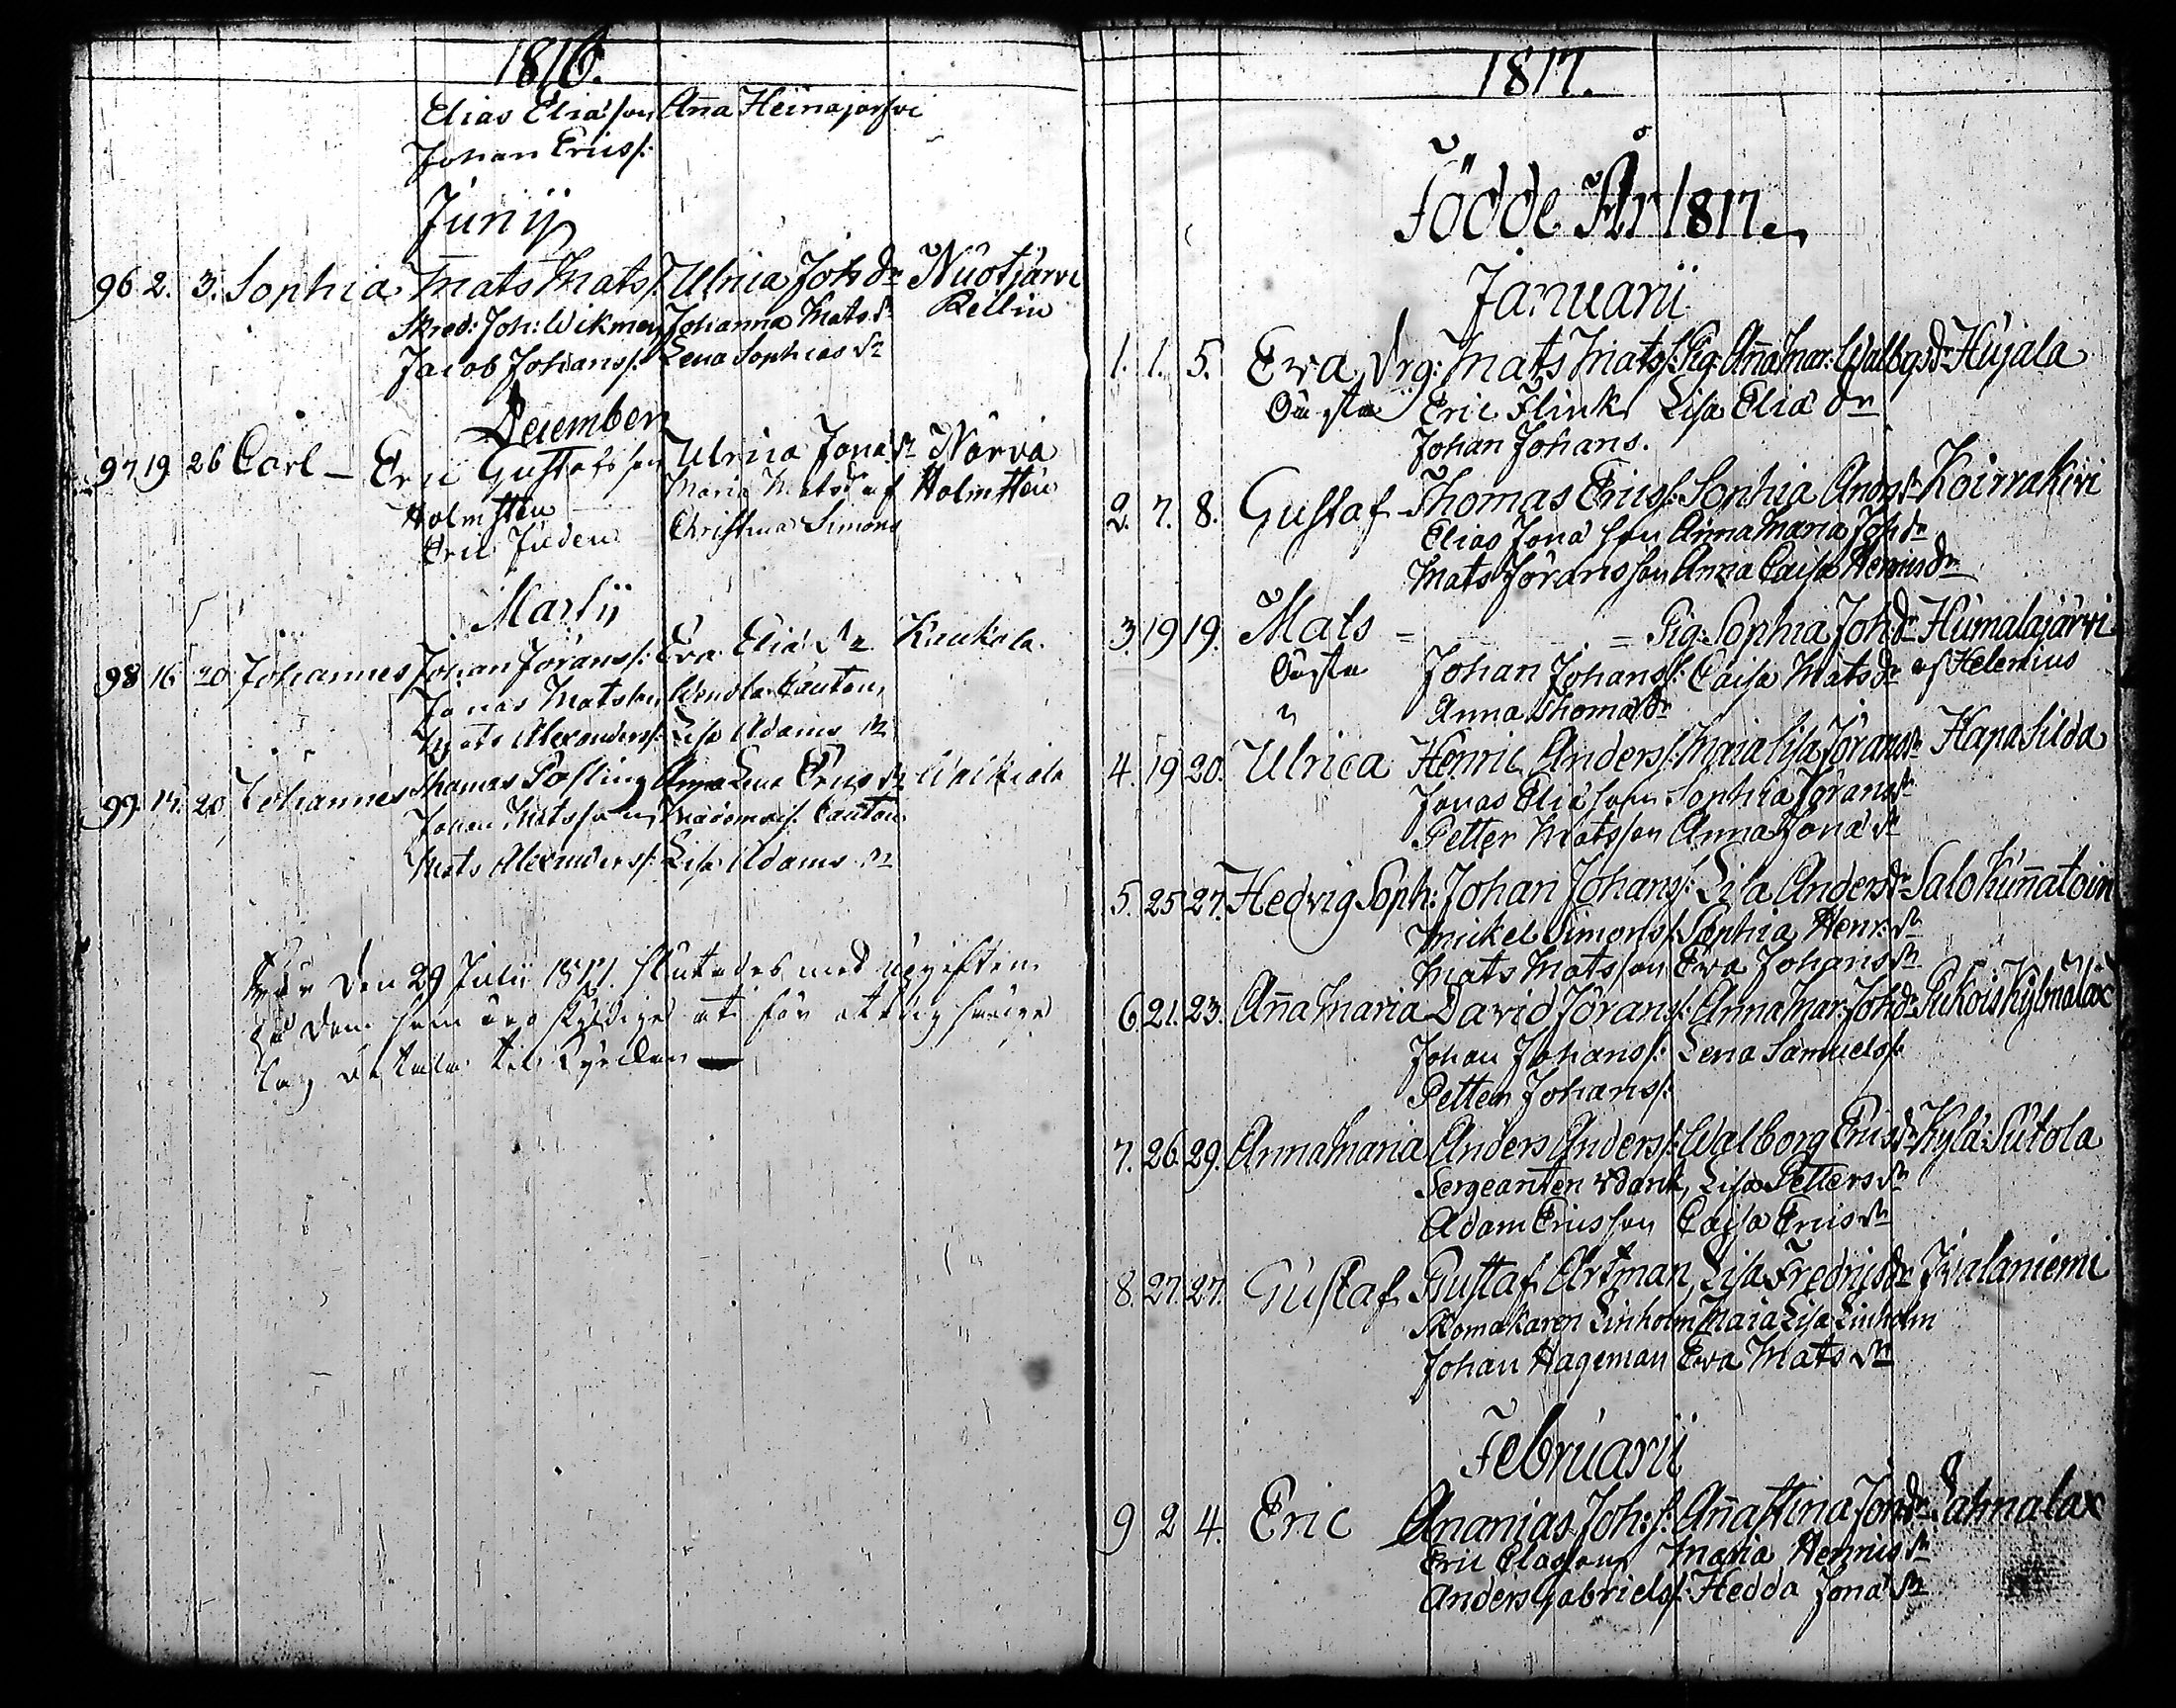 1816.
Elias Eliasson Aña Heinajarfvi
Johan Erics/:
Junij
96 2. 3. Sophia Mats Mats/: Ulrica Joh dr Nuotjärvi
Skred: Joh: Wikman Johanna Mats dr Rellin
Jacob Johans/: Lena Sophias dr
December
97 19 26 Carl – Eric Gustafsson Ulrica Jona dr Norva
Holmsten Maria Matsd af Holmsten
Eric Juden Christina Simons
Martii
98 16 20 Johannes Johan Jörans/: Eva Elia dr Kaukola.
Jonas Matsson Wendla Cauton
Mats Alexanders/: Lisa Adams dr
99 14. 20 Johannes Thomas Posling Anna Lena Erics dr
Johan Matsson Cauton
Mats Alexanders/: Lisa Adams dr
den 29 Julii 1817. slutades med uppgiften
på dem som äro skyldige at för
1817.
Födde År 1817.
Januarii
1. 1. 5. Eva Drg: Mats Mats/: Pig: Aña Mar: Walbgsdr Hujala
Oägta Eric Flink Lisa Elia dr
Johan Johans.
2. 7. 8. Gustaf Thomas Erics/: Sophia Anon dr Koirrakivi
Elias Jona son Anna Maria Joh dr
Mats Jöransson Anna Caisa Henrics dr
3. 19 19. Mats = = Pig: Sophia Joh dr Humalajärvi
Oägta Johan Johans/: Caisa Mats dr af Helenius
" Anna Thomas dr
4. 19 20. Ulrica Henric Anders/: Maia Lisa Jörans dr Hapasilda
Jonas Eliasson Sophia Jörans dr
Petter Matsson Anna Jona dr
5. 25 27. Hedvig Soph: Johan Johans/: Lisa Anders dr Salokuñatoin
Mickel Simons/: Sophia Henr: dr
Mats Matsson Eva Johans dr
6 21. 23. Aña Maria David Jörans/: Anna Mar: Joh dr
Johan Johans/: Lena Samuels/:
Petter Johans/:
7. 26. 29. Anna Maria Anders Anders/: Walborg Erics dr Kylä: Sutola
Sergeanten Lisa Petters dr
Adam Ericsson Caisa Erics dr
8. 27. 27. Gustaf Gustaf Artman, Lisa Fredrics dr
Skomakaren Linholm Maia Lisa Linholm
Johan Hageman Eva Mats dr
Februarii
9 2 4. Eric Ananias Joh: s: Aña Stina Jon dr Sahnalax
Eric Classon Maria Henrics dr
Anders Gabriels/: Hedda Jona dr